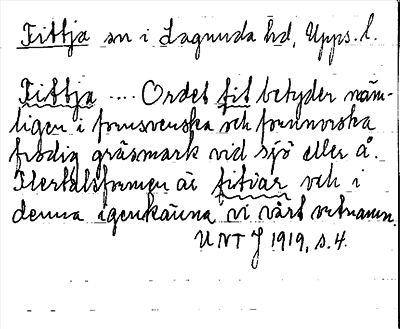 Fittja sn i Lagunda hd, Upps. l.
Fittja .... Ordet fit betyder näm-
ligen i fornsvenska och fornnorska
frodig gräsmark vid sjö eller å.
Flertalsformen är fitiar och i
denna igenkänna vi vårt ortnamn.
UNT J 1919, s. 4.